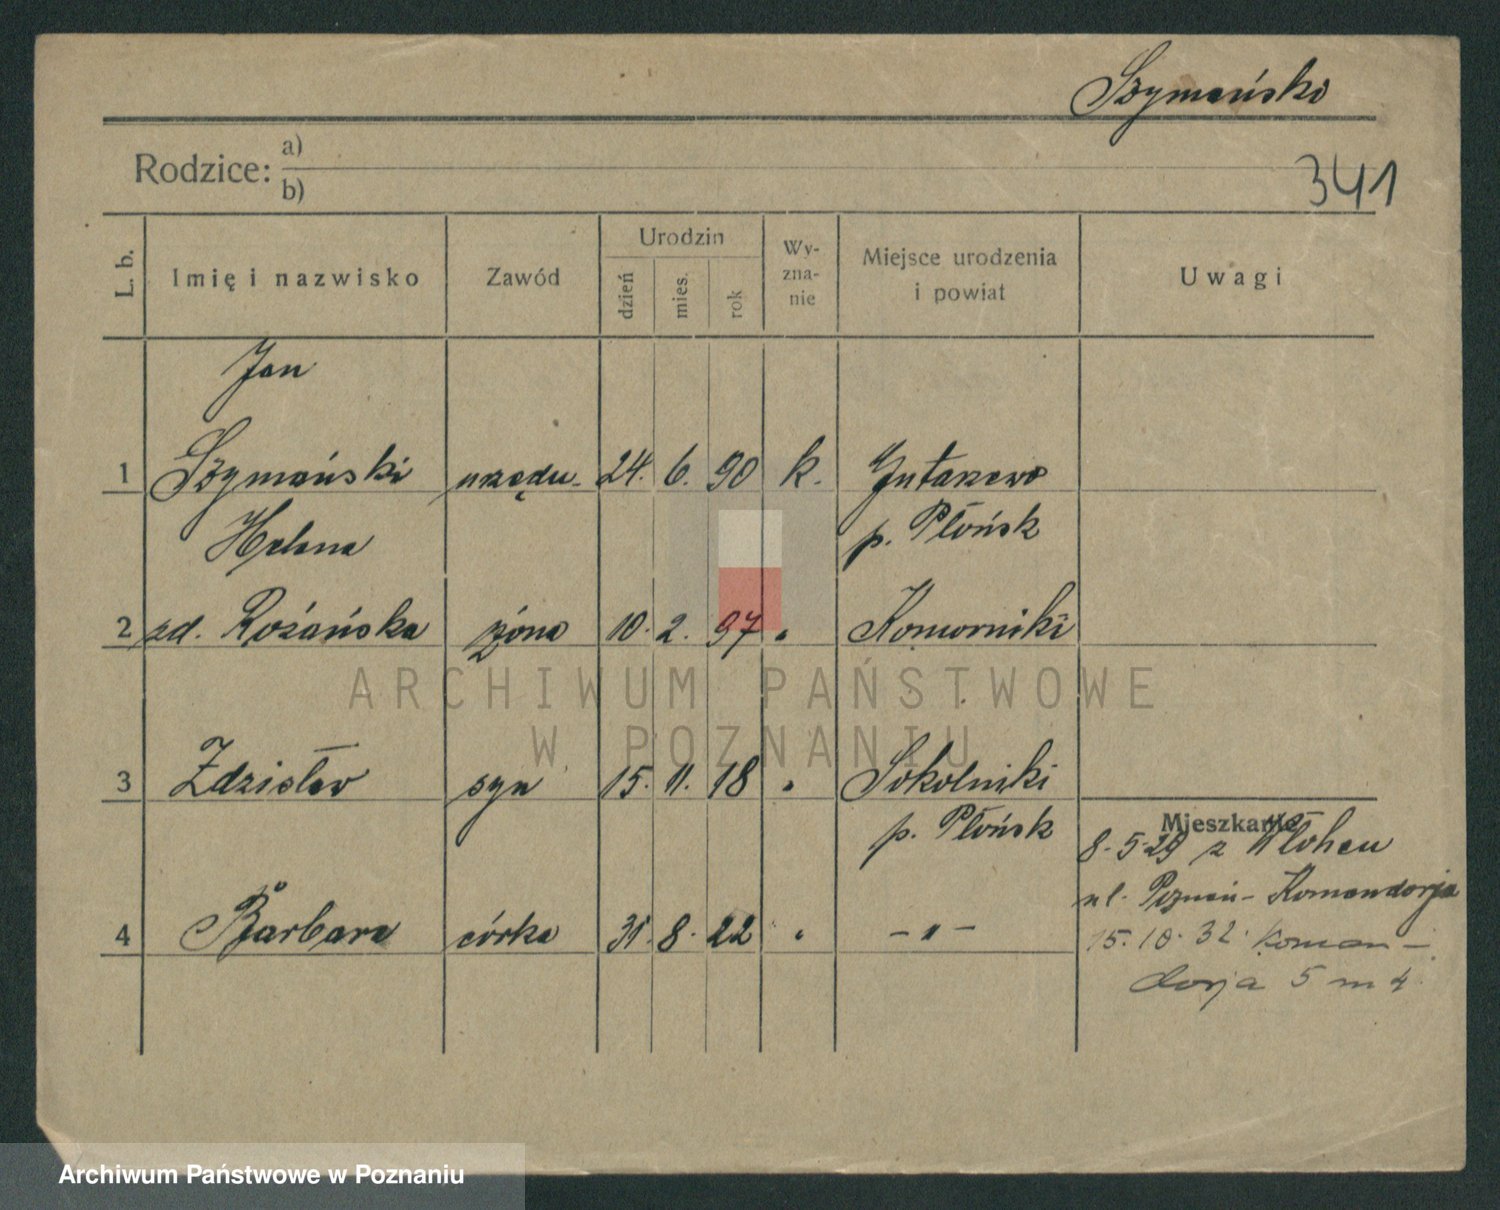 Szymański
Rodzice: a)
b)
341
L. b. Imię i nazwisko Zawód Urodzin dzień mies. rok Wy-zna-nie Miejsce urodzenia i powiat Uwagi
Jan
1 Szymański urzędu. 24. 6. 90 k. Gutarzewo
Helena p. Płońsk
2 zd. Rożańska żona 10. 2. 97 " Komorniki
ARCHIWUM PAŃSTWOWE
W POZNANIU
3 Zdzisław syn 15. 11. 18 " Sokolniki
p. Płońsk Mieszkanie
8-5-29 z
ul. Poznań - Komandorja
4 Barbara córka 31. 8. 22 " - " -
15. 10. 32. Koman-
dorja 5 m 4.
Archiwum Państwowe w Poznaniu